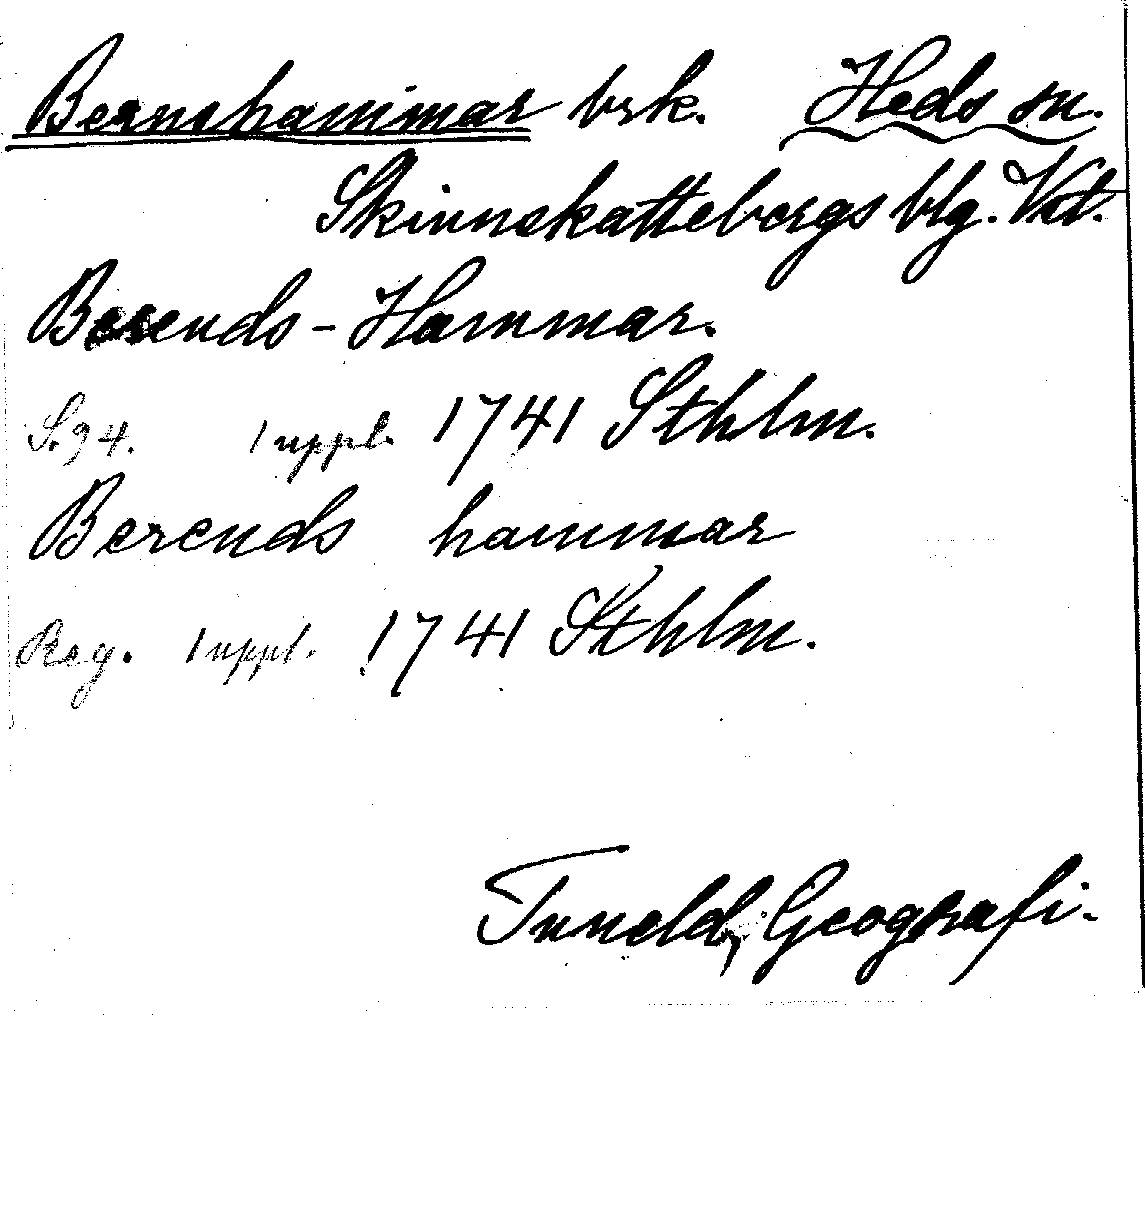 Bernshammar brk. Heds sn.
Skinnskattebergs blg. Vstl.
Berends-Hammar.
S. 94. 1 uppl. 1741 Sthlm.
Berends hammar
Reg. 1 uppl. 1741 Sthlm.
Tuneld, Geografi.